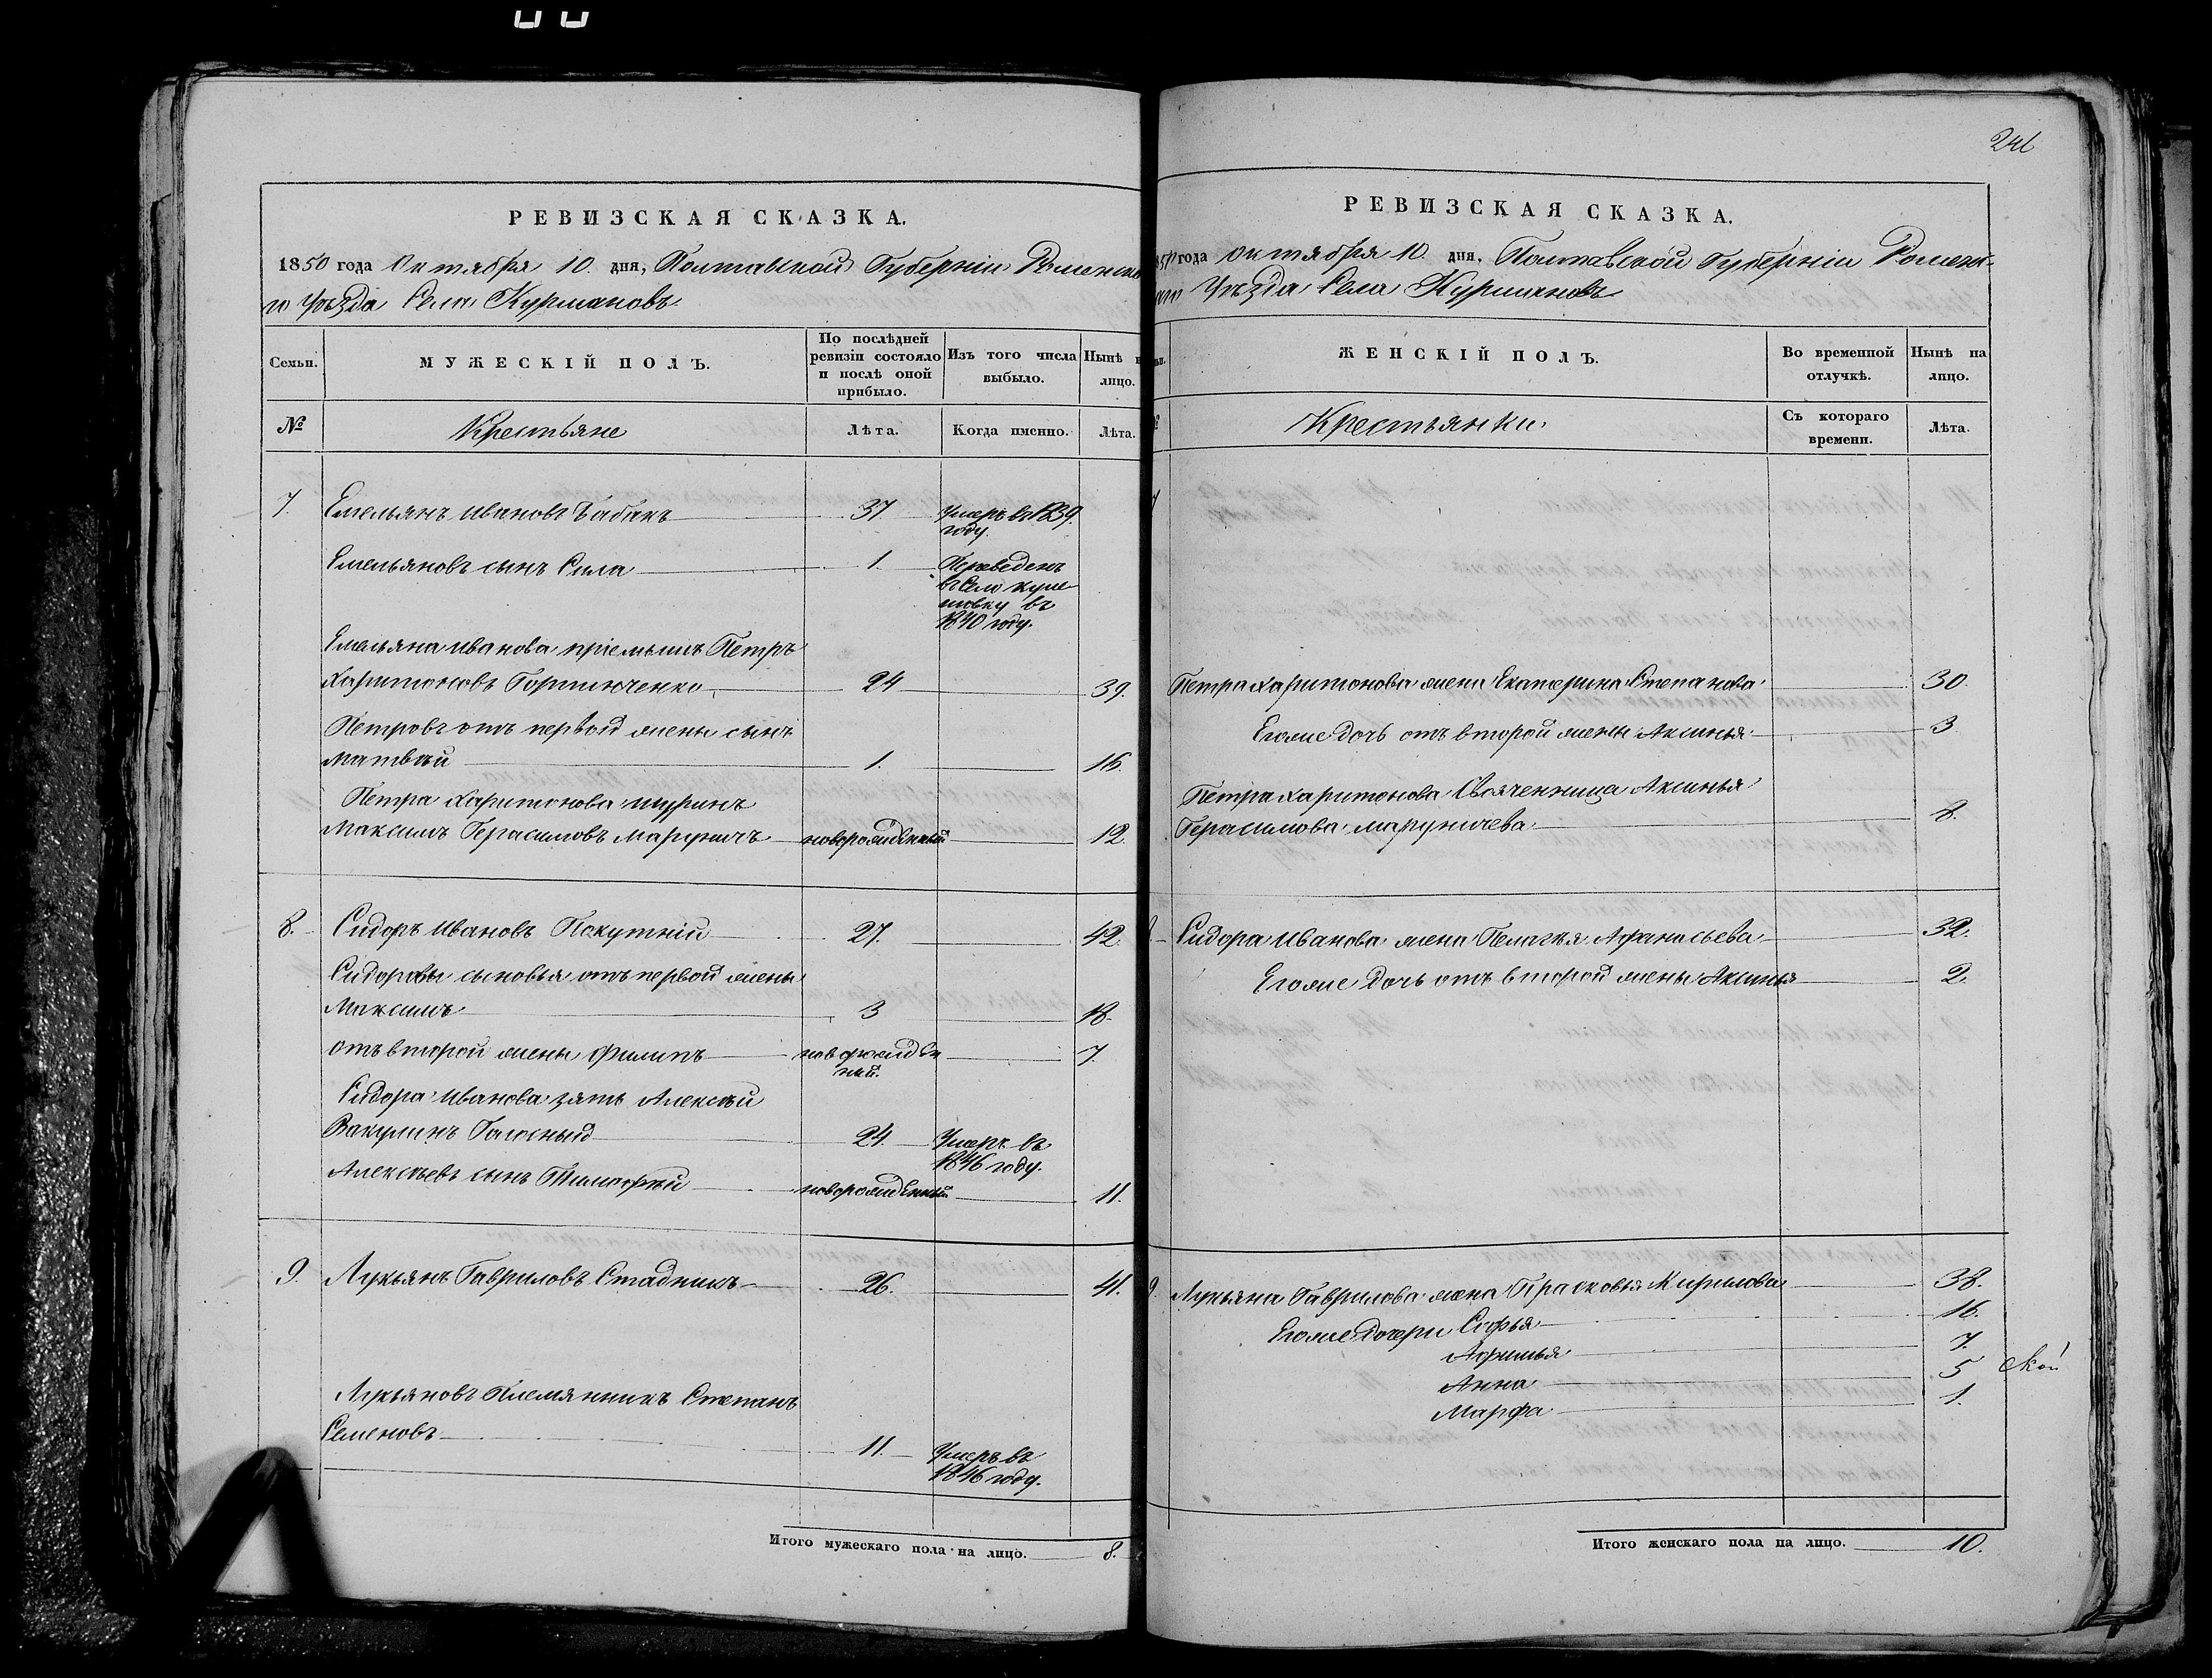 РЕВИЗСКАЯ СКАЗКА.
1850 года Октября 10. дня, Полтавской Губерніи Роменска
го Уѣзда Села Курмановъ
Семьи.
МУЖЕСКІЙ ПОЛЪ.
По послѣдней
ревизіи состояло
и послѣ оной
прибыло.
Изъ того числа
выбыло.
Нынѣ н
лицо.
№
Крестьяне
Лѣта.
Когда именно.
Лѣта.
7. Емельянъ Ивановъ Бабакъ 37 Умеръ въ 1839.
году.
Емельяновъ сынъ Сила 1. Переведенъ
въ Село
въ
1840 году.
Емельяна Иванова пріемышъ Петръ
Харитоновъ 24 39.
Петровъ отъ первой жены сынъ
Матвѣй 1. 16.
Петра Харитонова шуринъ
Максимъ Герасимовъ Маруничъ новорожденный 12.
8. Сидоръ Ивановъ Покутній 27. 42.
Сидоровы сыновья отъ первой жены
Максимъ 3 18.
отъ второй жены Филипъ новорожден
ный. 7.
Сидора Иванова зять Алексѣй
Вакулинъ 24. Умеръ въ
1846 году.
Алексѣевъ сынъ Тимофѣй новорожденный. 11.
9. Лукьянъ Гавриловъ Стадникъ 26. 41.
Лукьяновъ Племянникъ Степанъ
Семеновъ 11. Умеръ въ
1846 году.
Итого мужескаго пола на лицо. 8.
246
РЕВИЗСКАЯ СКАЗКА.
года Октября 10. дня, Полтавской Губерніи Роменс-
Уѣзда Села Курмановъ
ЖЕНСКІЙ ПОЛЪ.
Во временной
отлучкѣ.
Нынѣ на
лицо.
Крестьянки.
Съ котораго
времени.
Лѣта.
Петра Харитонова жена Екатерина Степанова 30.
Егоже дочь отъ второй жены Аксинья 3
Петра Харитонова Свояченница Аксинья
Герасимова Маруничева 8.
Сидора Иванова жена Пелагѣя Афанасьева 32.
Егоже дочь отъ второй жены Аксинья 2.
9. Лукьяна Гаврилова жена Прасковья Кирилова 38.
Егоже Дочери Софья 16.
Афимья 7.
Анна 5
Марфа 1.
ской
Итого женскаго пола на лицо. 10.